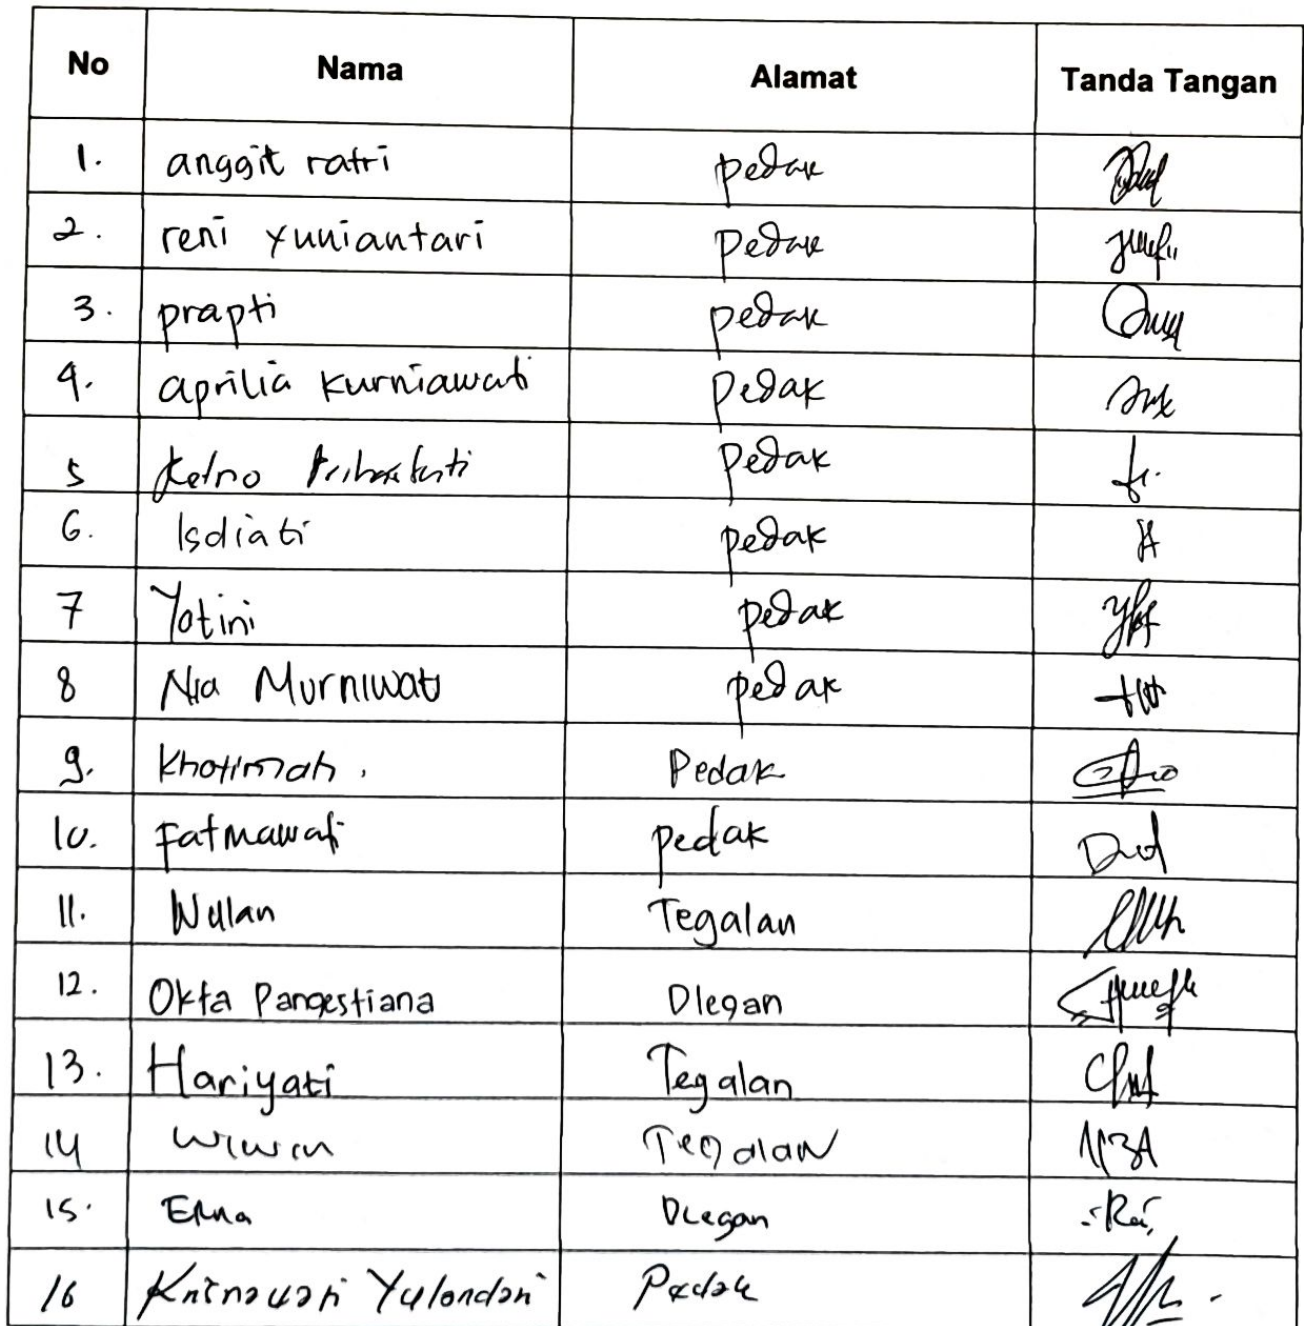 No Nama Alamat Tanda Tangan
1. anggit ratri pedak
2. reni yuniantari pedak
3. prapti pedak
4. aprilia kurniawati pedak
5 pedak
6. Isdiati pedak
7 Yatini pedak
8 Nia Murniwati pedak
9. Khotimah. Pedak
10. Fatmawati pedak
11. Wulan Tegalan
12. Okta Pangestiana Dlegan
13. Hariyati Tegalan
14 Wiwin Tegalan
15. Erna Dlegan
16 Yulandari Pedak